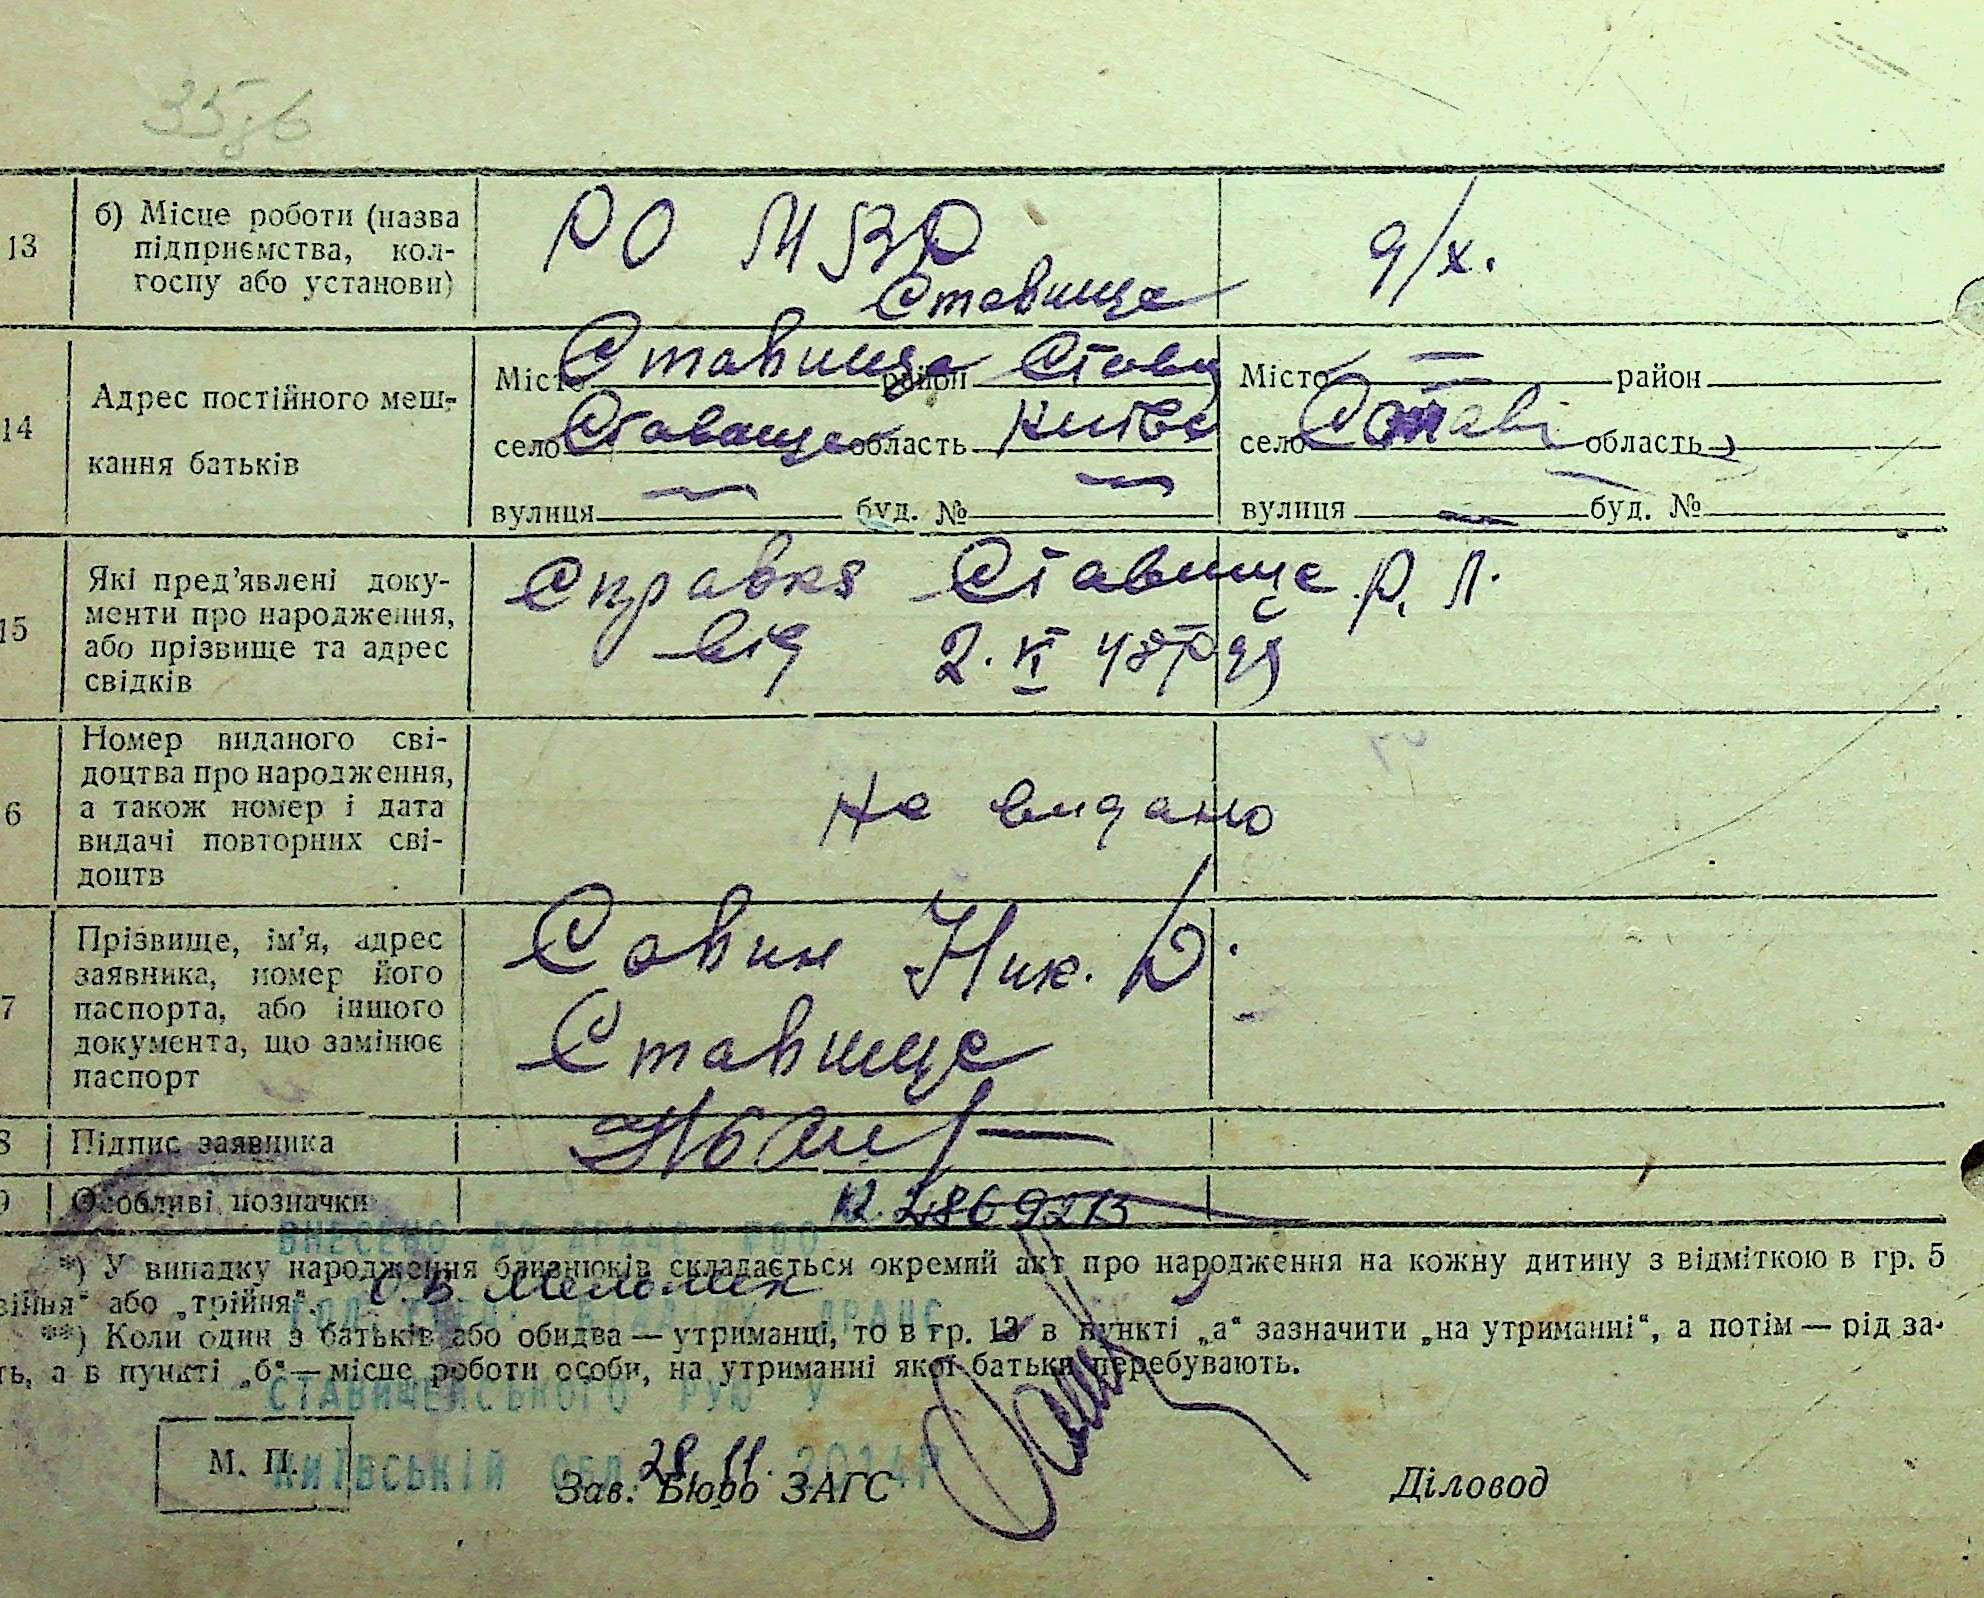 13 б) Місце роботи (назва
підприємства, кол-
госпу або установи)
РО МВД
Ставище
д/х.
14 Адрес постійного меш-
кання батьків
Місто Ставище район Стави
село Ставище область Київс
вулиця — буд. № —
Місто — район
село Стави область
вулиця — буд. №
15 Які пред’явлені доку-
менти про народження,
або прізвище та адрес
свідків
Справка Ставище р. л.
від 2. VI 48
6 Номер виданого сві-
доцтва про народження,
а також номер і дата
видачі повторних сві-
доцтв
Не видано
7 Прізвище, ім’я, адрес
заявника, номер його
паспорта, або іншого
документа, що замінює
паспорт
Савин Ник.
Ставище
8 Підпис заявника
9 Особливі позначки
ВНЕСЕНО ДО ДРАЦС
*) У випадку народження близнюків складається окремий акт про народження на кожну дитину з відміткою в гр. 5
війня“ або „трійня“.
ДРАЦС
**) Коли один з батьків або обидва — утриманці, то в гр. 13 в пункті „а“ зазначити „на утриманні“, а потім — рід за-
ть, а в пункті „б“ — місце роботи особи, на утриманні якої батьки перебувають.
СТАВИЩЕНСЬКОГО РУЮ У
КИЇВСЬКІЙ ОБЛ 28 11. 2014Р
М. П.
Зав. Бюро ЗАГС
Діловод